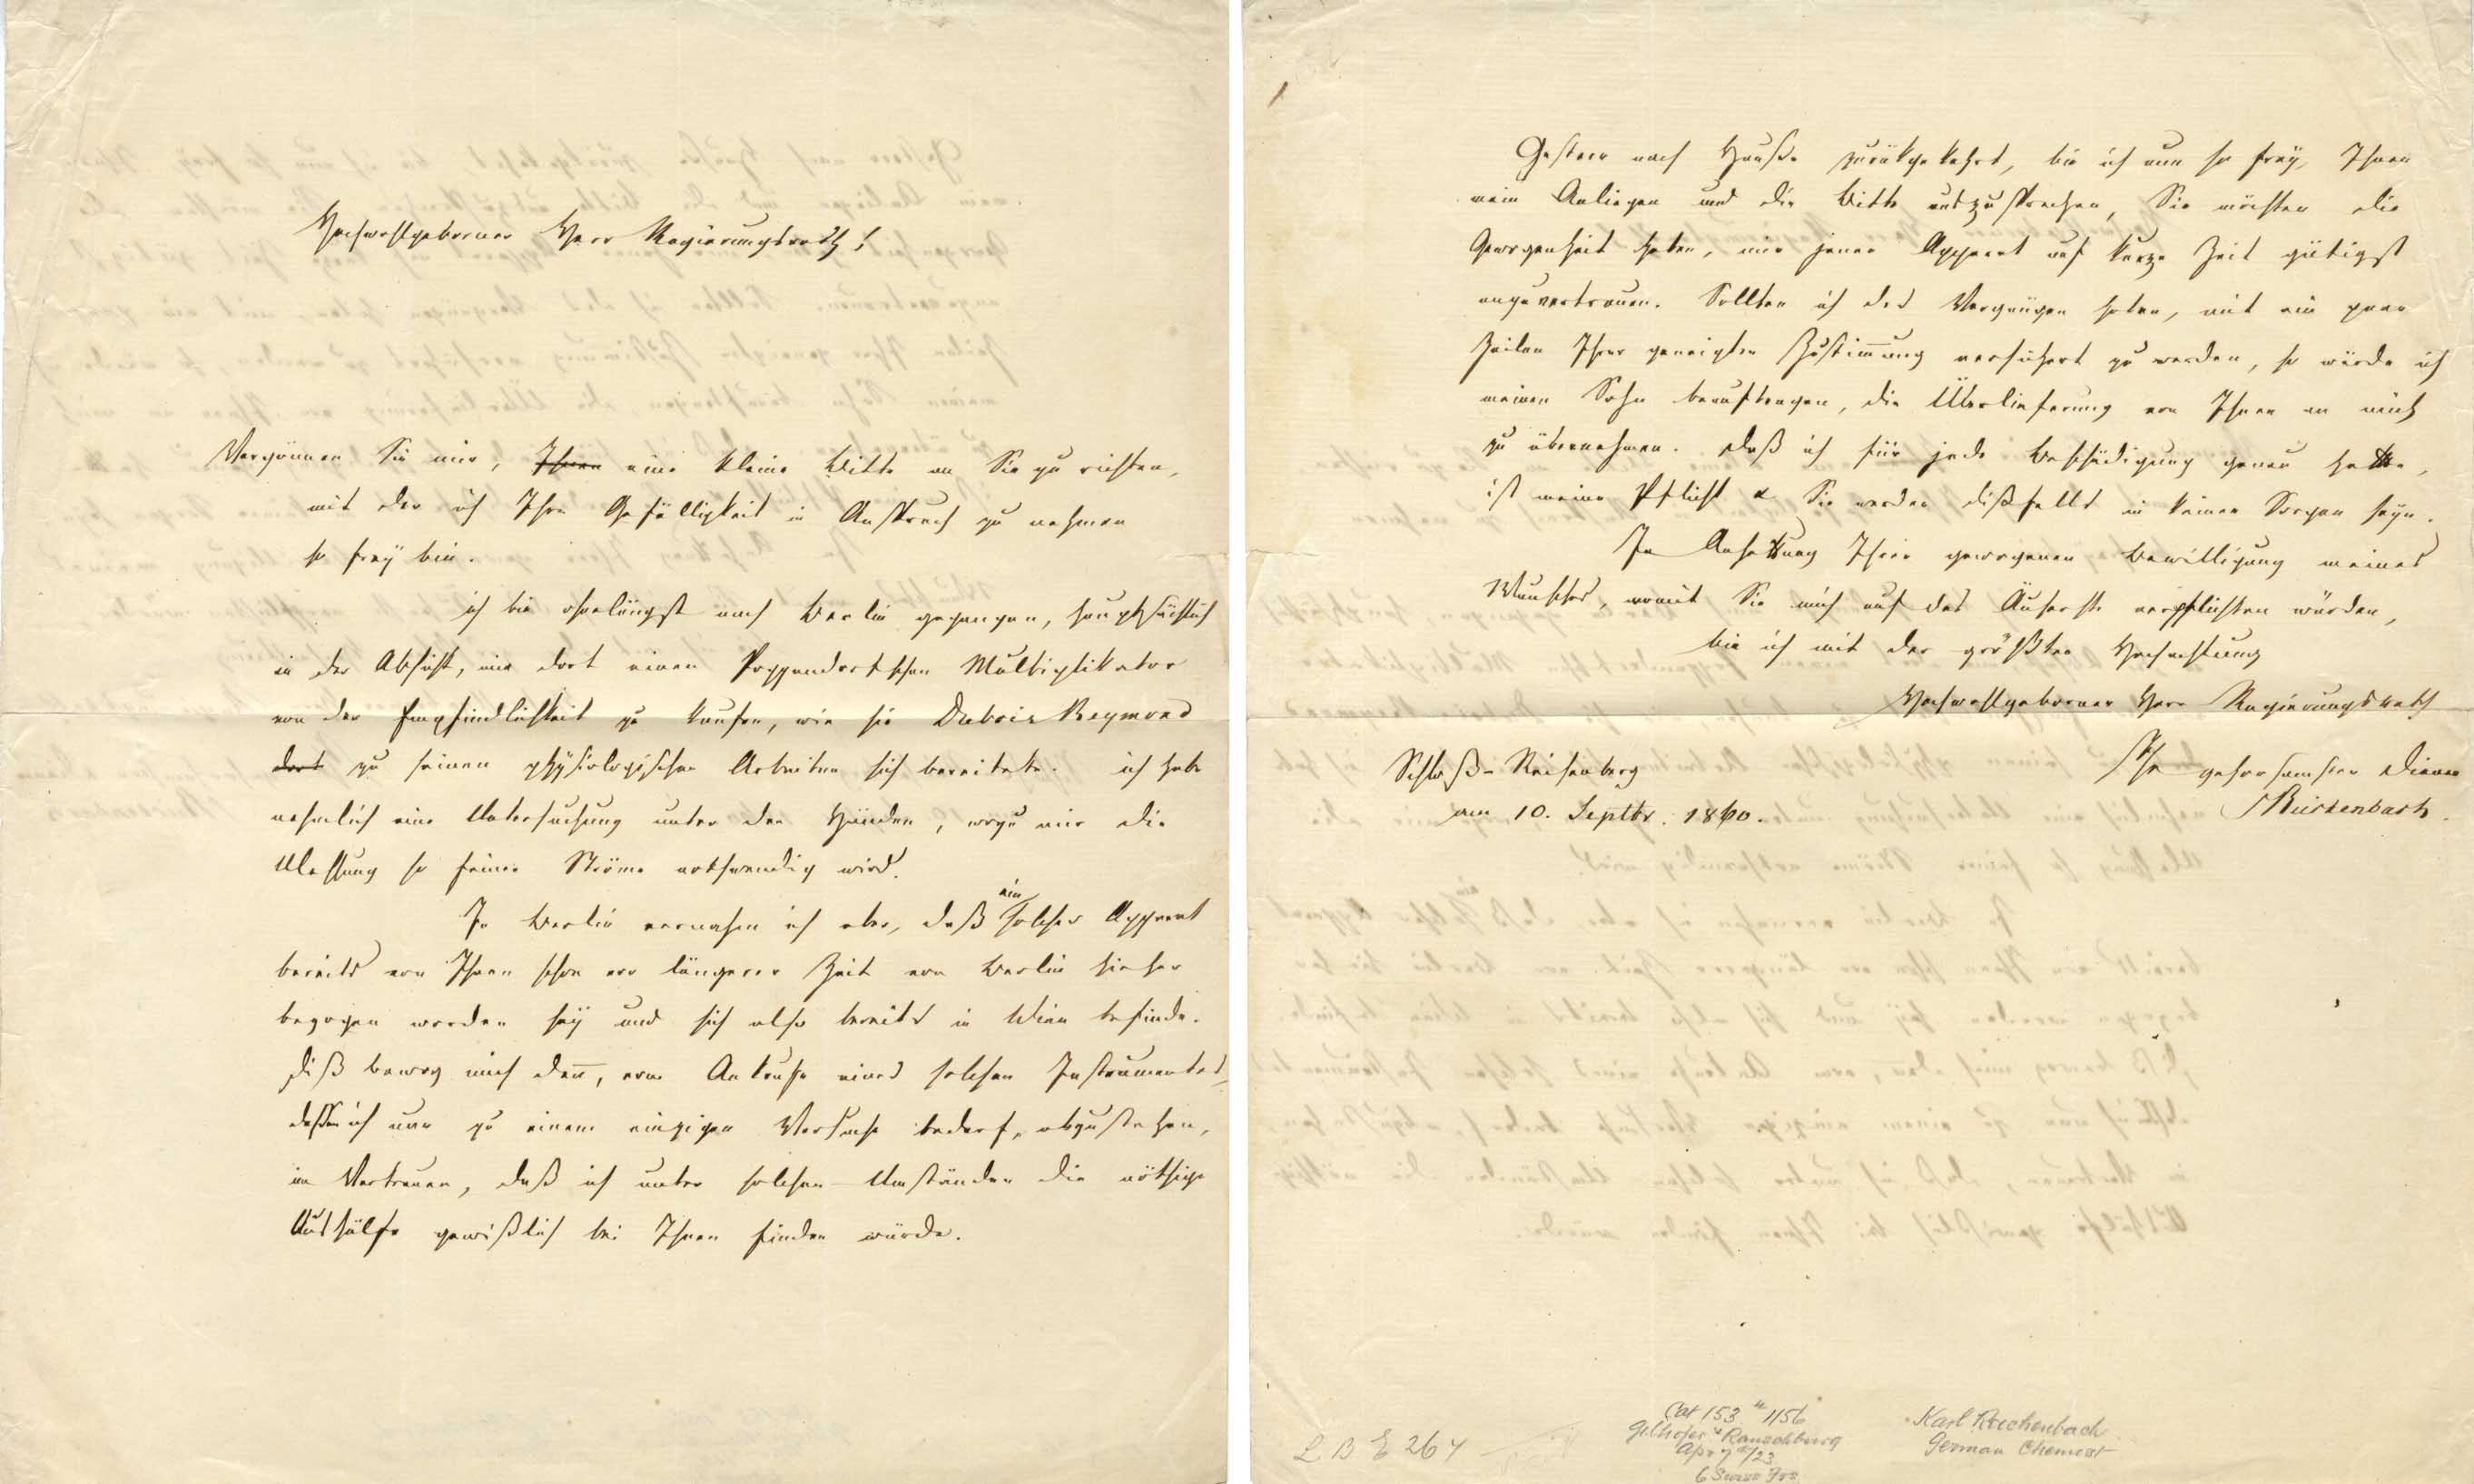 Hochwohlgeborner Herr Regierungsrath!
Vergönnen Sie mir, Ihnen eine kleine Bitte an Sie zu richten,
mit der ich Ihre Gefälligkeit in Anspruch zu nehmen
so frey bin.
ich bin ohnlängst nach Berlin gegangen, hauptsächlich
in der Absicht, mir dort einen Poggendorfschen Multiplikator
von der Empfindlichkeit zu kaufen, wie sie Dubois Reymond
dort zu seinen physiologischen Arbeiten sich bereitete. ich habe
nehmlich eine Untersuchung unter den Händen, wozu mir die
Messung so feiner Ströme nothwendig wird.
In Berlin vernahm ich aber, daß ein solcher Apparat
bereits von Ihnen schon vor längerer Zeit von Berlin hieher
bezogen worden sey und sich also bereits in Wien befinde.
diß bewog mich den̅, vom Ankaufe eines solchen Instrumentes,
dessen ich nur zu einem einzigen Versuche bedarf, abzustehen,
im Vertrauen, daß ich unter solchen Umständen die nöthige
Aushülfe gewißlich bei Ihnen finden würde.
Gestern nach Hauße zurükgekehrt, bin ich nun so frey, Ihnen
mein Anliegen und die Bitte auszusprechen, Sie möchten die
Gewogenheit haben, mir jenen Apparat auf kurze Zeit gütigst
anzuvertrauen. Sollte ich das Vergnügen haben, mit ein paar
Zeilen Ihrer geneigten Zustim̅ung versichert zu werden, so würde ich
meinen Sohn beauftragen, die Überlieferung von Ihnen an mich
zu übernehmen. daß ich für jede Beschädigung genau hafte,
ist meine Pflicht & Sie werden dißfalls in keinen Sorgen seyn.
In Anhoffung Ihrer gewogenen Bewilligung meines
Wunsches, womit Sie mich auf das Äußerste verpflichten würden,
bin ich mit der größten Hochachtung
Hochwohlgeborner Herr Regierungsrath
Schloß-Reisenberg
Ihr gehorsamster Diener
am 10. Septbr. 1860.
Reichenbach.
L B E 264
Cat 153 # 1156
Gilhofer & Ranschburg
Apr 7/23
6 Swiss Frs
Karl Reichenbach
German Chemist